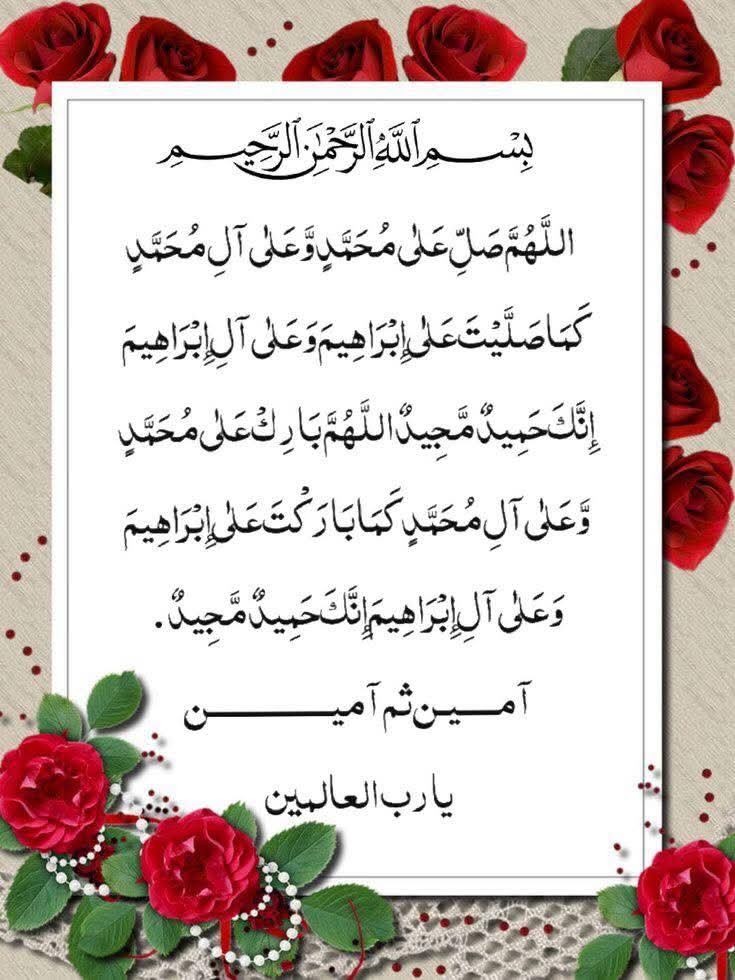 بِسْمِ ٱللَّهِ ٱلرَّحْمَٰنِ ٱلرَّحِيمِ
اللَّهُمَّ صَلِّ عَلٰى مُحَمَّدٍ وَّعَلٰى آلِ مُحَمَّدٍ
كَمَا صَلَّيْتَ عَلٰى إِبْرَاهِيمَ وَعَلٰى آلِ إِبْرَاهِيمَ
إِنَّكَ حَمِيدٌ مَّجِيدٌ اللَّهُمَّ بَارِكْ عَلٰى مُحَمَّدٍ
وَّعَلٰى آلِ مُحَمَّدٍ كَمَا بَارَكْتَ عَلٰى إِبْرَاهِيمَ
وَعَلٰى آلِ إِبْرَاهِيمَ إِنَّكَ حَمِيدٌ مَّجِيدٌ.
آمــيـن ثم آميــــــــن
يا رب العالمين